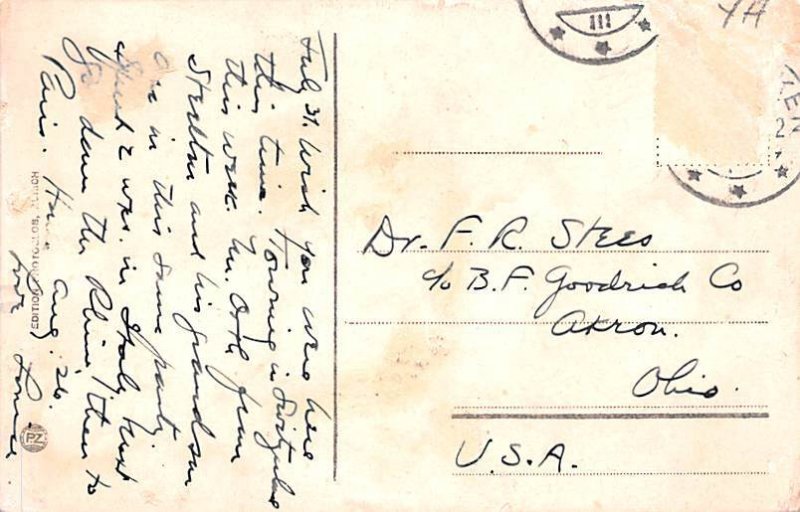 July 31. Wish you were here
this time. Touring in Switzerland
this week. Mr. Orth from
Steelton and his grandson
are in this same party.
Spent 2 wks. in Italy, next
go down the Rhine, then to
Paris. Home Aug. 26.
Love
EDITION PHOTOGLOB, ZÜRICH
PZ
III
YA
EN
2
Dr. F. R. Stees
c/o B. F. Goodrich Co
Akron.
Ohio.
U.S.A.